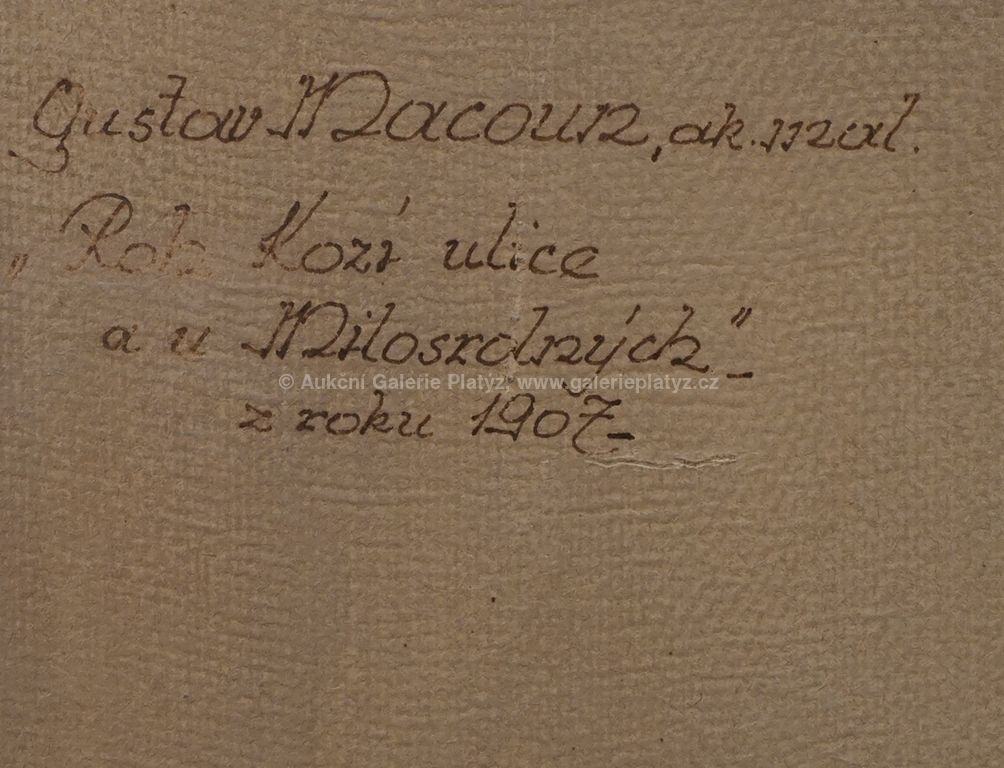 Gustav Macoun, ak. mal.
„Roh Kozí ulice
a u Milosrdných"
© Aukční Galerie Platyz, www.galerieplatyz.cz
z roku 1907